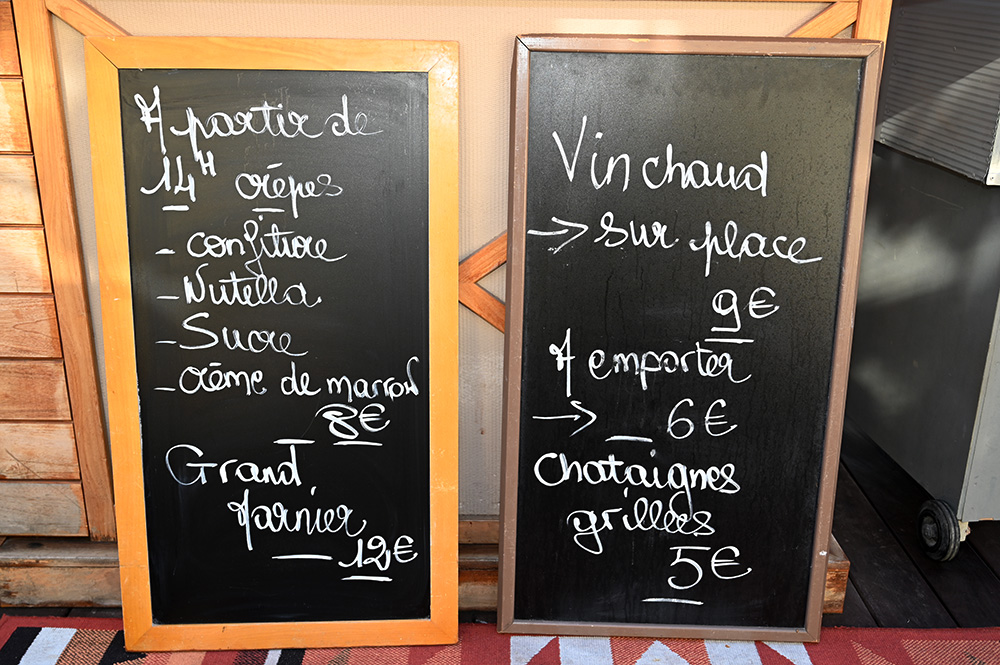 A partir de
14H crêpes
- confiture
- Nutella
- Sucre
- crème de marron
8€
Grand
Marnier
12€
Vin chaud
→ sur place
9€
A emporter
→ 6€
Chataignes
grillées
5€